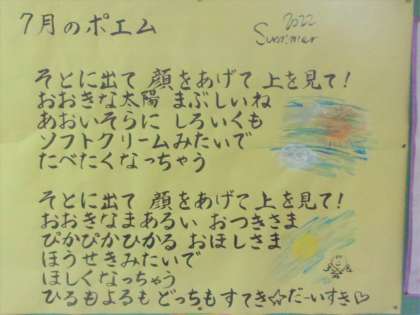 7月のポエム
2022
Summer
そとに出て 顔をあげて 上を見て!
おおきな太陽 まぶしいね
あおいそらに しろいくも
ソフトクリームみたいで
たべたくなっちゃう
そとに出て 顔をあげて 上を見て!
おおきなまあるい おつきさま
ぴかぴかひかる おほしさま
ほうせきみたいで
ほしくなっちゃう
ひるもよるもどっちもすてき☆だーいすき♡